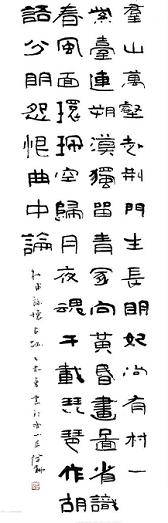 羣山萬壑赴荊門生長明妃尚有村一
紫臺連朔漠獨留青冢向黃昏畫圖省識
春風面環珮空歸月夜魂千載琵琶作胡
語分明怨恨曲中論
杜甫詠懷古跡